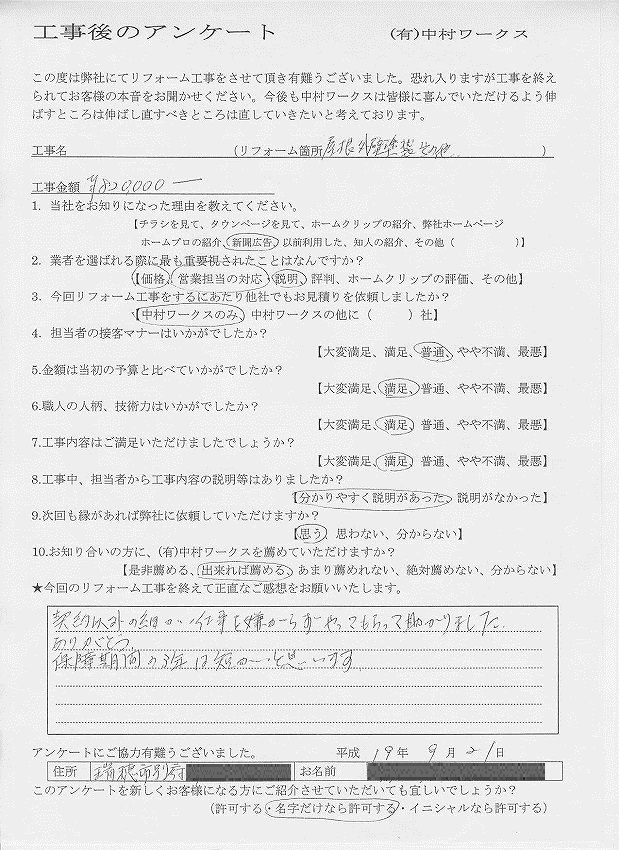 工事後のアンケート (有)中村ワークス
この度は弊社にてリフォーム工事をさせて頂き有難うございました。恐れ入りますが工事を終え
られてお客様の本音をお聞かせください。今後も中村ワークスは皆様に喜んでいただけるよう伸
ばすところは伸ばし直すべきところは直していきたいと考えております。
工事名 (リフォーム箇所 屋根外壁塗装その他 )
工事金額 ¥820,000―
1. 当社をお知りになった理由を教えてください。
【チラシを見て、タウンページを見て、ホームクリップの紹介、弊社ホームページ
ホームプロの紹介、新聞広告、以前利用した、知人の紹介、その他（ ）】
2. 業者を選ばれる際に最も重要視されたことはなんですか？
【価格、営業担当の対応・説明、評判、ホームクリップの評価、その他】
3. 今回リフォーム工事をするにあたり他社でもお見積りを依頼しましたか？
【中村ワークスのみ、中村ワークスの他に（ ）社】
4. 担当者の接客マナーはいかがでしたか？
【大変満足、満足、普通、やや不満、最悪】
5.金額は当初の予算と比べていかがでしたか？
【大変満足、満足、普通、やや不満、最悪】
6.職人の人柄、技術力はいかがでしたか？
【大変満足、満足、普通、やや不満、最悪】
7.工事内容はご満足いただけましたでしょうか？
【大変満足、満足、普通、やや不満、最悪】
8.工事中、担当者から工事内容の説明等はありましたか？
【分かりやすく説明があった、説明がなかった】
9.次回も縁があれば弊社に依頼していただけますか？
【思う、思わない、分からない】
10.お知り合いの方に、(有)中村ワークスを薦めていただけますか？
【是非薦める、出来れば薦める、あまり薦めれない、絶対薦めない、分からない】
★今回のリフォーム工事を終えて正直なご感想をお願いいたします。
契約以外の細かい仕事を嫌がらずやってもらって助かりました。
ありがとう。
保障期間の3年は短かいと思います
アンケートにご協力有難うございました。 平成 19 年 9 月 21 日
住所 瑞穂市別府 お名前
このアンケートを新しくお客様になる方にご紹介させていただいても宜しいでしょうか？
(許可する・名字だけなら許可する・イニシャルなら許可する)